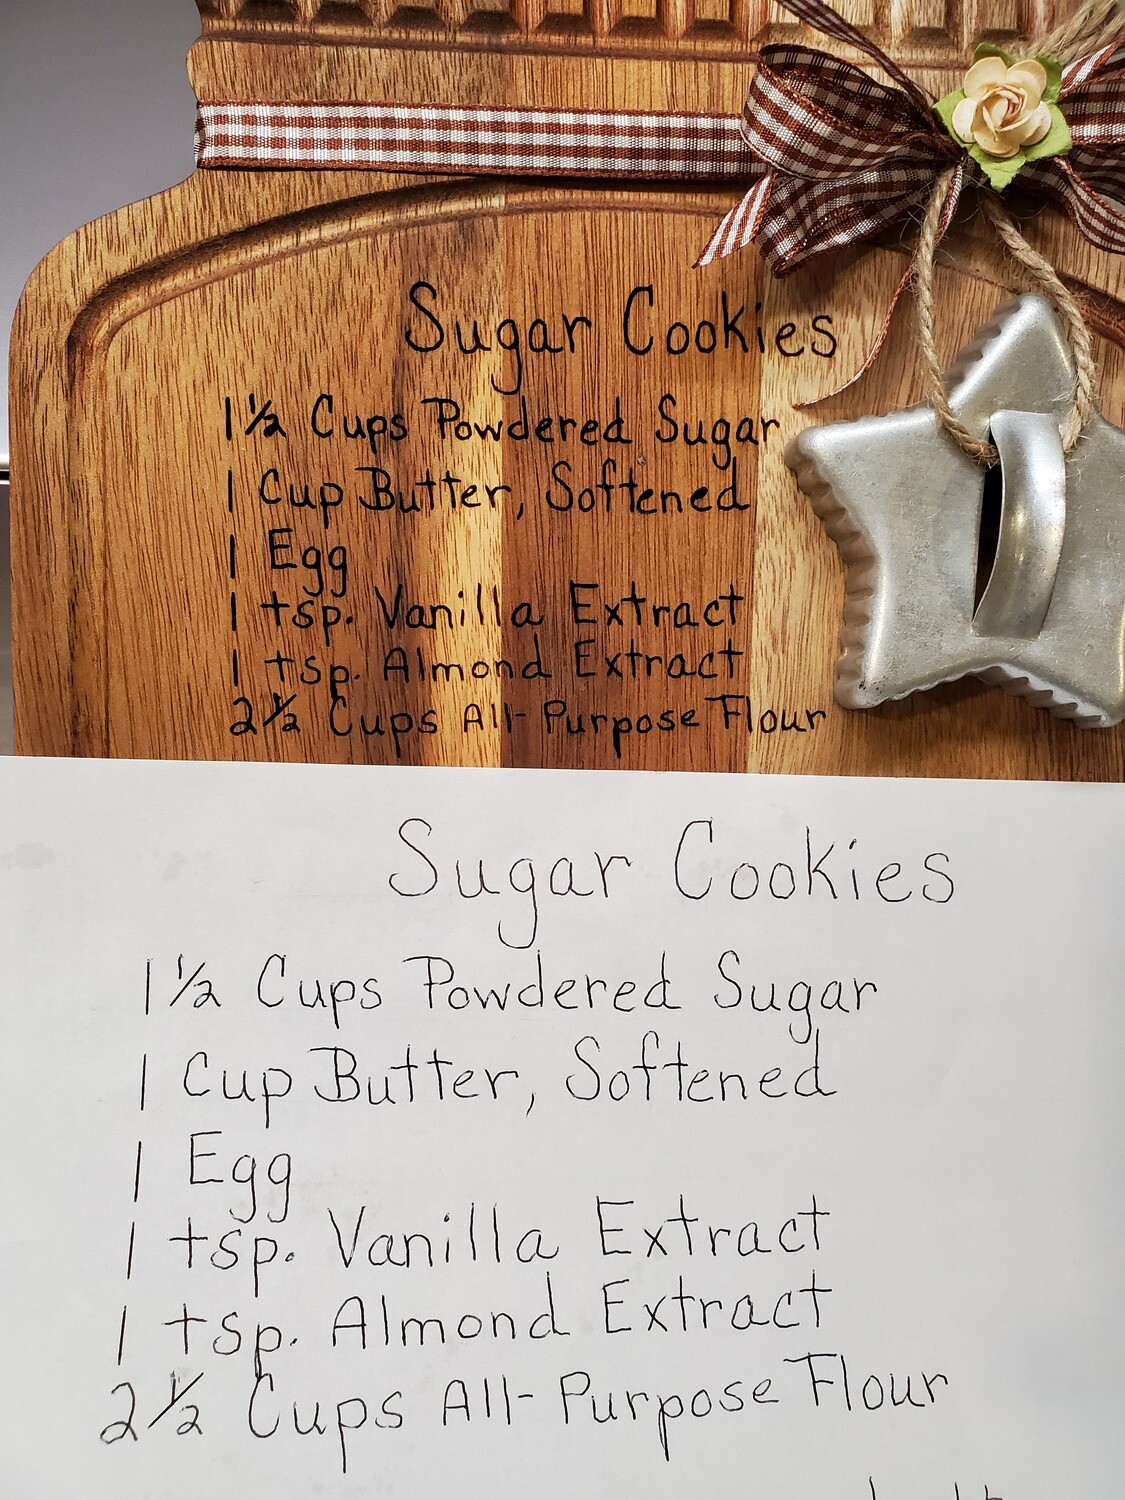 Sugar Cookies
1 1/2 Cups Powdered Sugar
1 Cup Butter, Softened
1 Egg
1 tsp. Vanilla Extract
1 tsp. Almond Extract
2 1/2 Cups All-Purpose Flour
Sugar Cookies
1 1/2 Cups Powdered Sugar
1 Cup Butter, Softened
1 Egg
1 tsp. Vanilla Extract
1 tsp. Almond Extract
2 1/2 Cups All-Purpose Flour